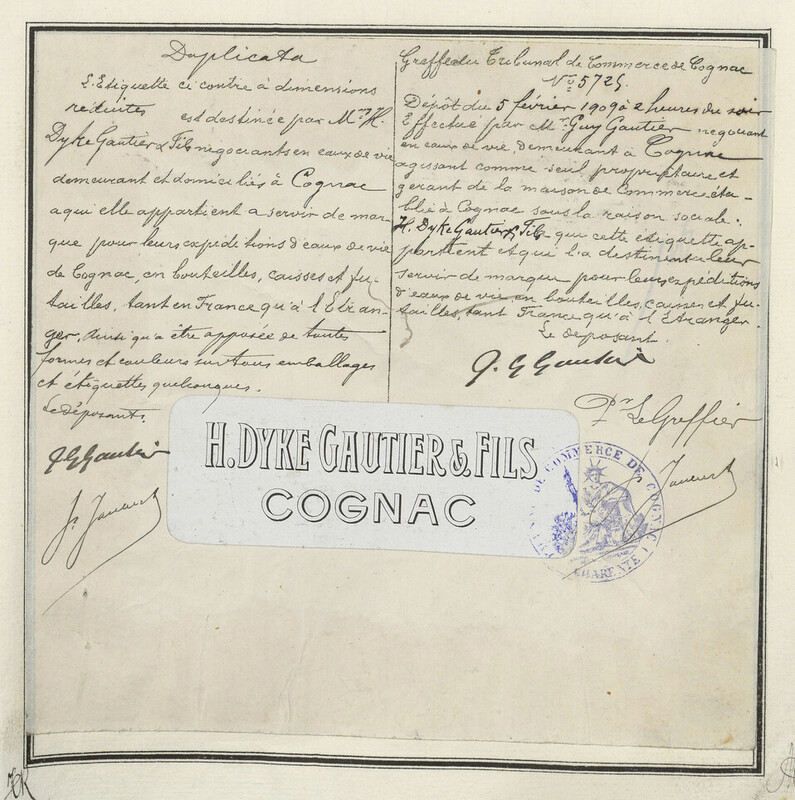 Duplicata
L'Etiquette ci contre à dimensions
réduites est destinée par Mrs H.
Dyke Gautier & Fils négociants en eaux de vie
demeurant et domiciliés à Cognac
a qui elle appartient a servir de mar-
que pour leurs expéditions d'eaux de vie
de Cognac, en bouteilles, caisses et fu-
tailles, tant en France qu'à l'Etran-
ger, Ainsi qu'a être apposée de toutes
formes et couleurs sur tous emballages
et étiquettes quelconques.
Le déposants.
J G Gautier
Greffe du Tribunal de Commerce de Cognac
No 5725
Dépôt du 5 février 1909 à 2 heures du soir
Effectué par Mr Guy Gautier négociant
en eaux de vie demeurant à Cognac
agissant comme seul propriétaire et
gérant de la maison de Commerce éta-
blie à Cognac sous la raison sociale:
H. Dyke Gautier & Fils qui cette étiquette ap-
partient et qui l'a destine a leur
servir de marque pour leurs expéditions
d'eaux de vie en bouteilles, caisses et fu-
tailles, tant France qu'à l'Etranger.
Le déposant.
J. G Gautier
Pr Le Greffier
H. DYKE GAUTIER & FILS
COGNAC
DE COMMERCE DE COGNAC
CHARENTE